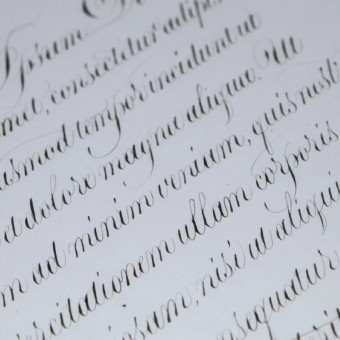 Ipsum
met, consectetur adipi
usmod tempor incidunt ut
a dolore magna aliqua. Ut
m ad minim veniam, quis nost
ercitationem ullam corporis
iosam, nisi ut aliqui
nsequatur